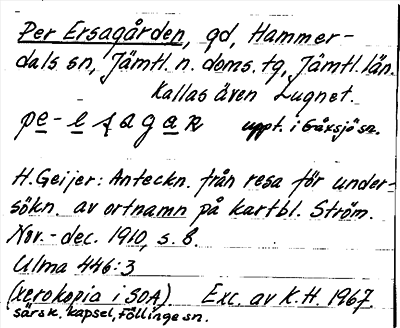 Per Ersagården, gd, Hammer-
dals sn, Jämtl. n. doms. tg, Jämtl. län.
Kallas även Lugnet.
pe-e ʃagaR uppt. i Gåxsjö sn.
H. Geijer: Anteckn. från resa för under-
sökn. av ortnamn på kartbl. Ström.
Nov.-dec. 1910, s. 8.
Ulma 446:3
(xerokopia i SOA). Exc. av K.H. 1967.
särsk. kapsel, Föllinge sn.